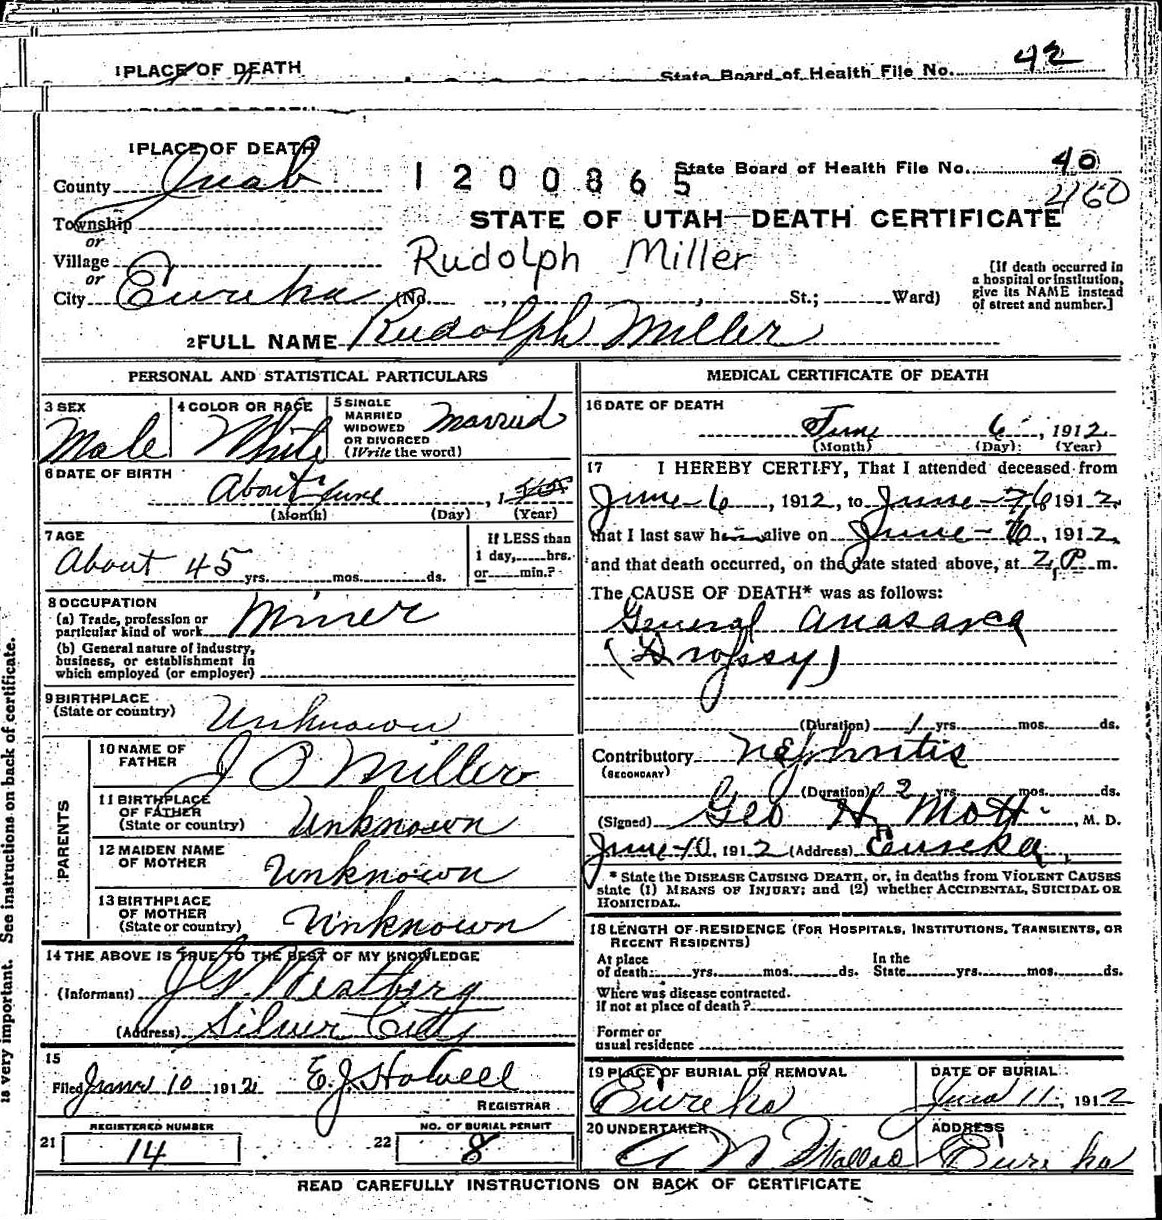 1 PLACE OF DEATH
State Board of Health File No. 42
1 PLACE OF DEATH
County Juab
1200865
State Board of Health File No. 40
460
Township
or
STATE OF UTAH—DEATH CERTIFICATE
Village
or
Rudolph Miller
City Eureka (No. , , St.; Ward)
[If death occurred in a hospital or institution, give its NAME instead of street and number.]
2 FULL NAME Rudolph Miller
PERSONAL AND STATISTICAL PARTICULARS
3 SEX
Male
4 COLOR OR RACE
White
5 SINGLE MARRIED WIDOWED OR DIVORCED (Write the word)
Married
6 DATE OF BIRTH
About June , 1
(Month) (Day) (Year)
7 AGE
About 45 yrs. mos. ds.
If LESS than 1 day, hrs. or min.?
8 OCCUPATION
(a) Trade, profession or particular kind of work Miner
(b) General nature of industry, business, or establishment in which employed (or employer)
9 BIRTHPLACE
(State or country) Unknown
PARENTS
10 NAME OF FATHER J P Miller
11 BIRTHPLACE OF FATHER (State or country) Unknown
12 MAIDEN NAME OF MOTHER Unknown
13 BIRTHPLACE OF MOTHER (State or country) Unknown
14 THE ABOVE IS TRUE TO THE BEST OF MY KNOWLEDGE
(Informant) J G Westberg
(Address) Silver City
15
Filed June 10 1912 E. J. Howell
REGISTRAR
21 REGISTERED NUMBER
14
22 NO. OF BURIAL PERMIT
8
MEDICAL CERTIFICATE OF DEATH
16 DATE OF DEATH
June 6, 1912
(Month) (Day) (Year)
17 I HEREBY CERTIFY, That I attended deceased from
June 6, 1912, to June 6 1912,
that I last saw him alive on June 6, 1912,
and that death occurred, on the date stated above, at 2, P. m.
The CAUSE OF DEATH* was as follows:
General anasarca
(Dropsy)
(Duration) 1 yrs. mos. ds.
Contributory Nephritis
(SECONDARY)
(Duration) 2 yrs. mos. ds.
(Signed) Geo H. Mott, M. D.
June 10, 1912 (Address) Eureka,
* State the DISEASE CAUSING DEATH, or, in deaths from VIOLENT CAUSES
state (1) MEANS OF INJURY; and (2) whether ACCIDENTAL, SUICIDAL OR
HOMICIDAL.
18 LENGTH OF RESIDENCE (FOR HOSPITALS, INSTITUTIONS, TRANSIENTS, OR
RECENT RESIDENTS)
At place of death: yrs. mos. ds. In the State yrs. mos. ds.
Where was disease contracted.
If not at place of death?
Former or
usual residence
19 PLACE OF BURIAL OR REMOVAL
Eureka
DATE OF BURIAL
June 11, 1912
20 UNDERTAKER
A N Wallace
ADDRESS
Eureka
READ CAREFULLY INSTRUCTIONS ON BACK OF CERTIFICATE
is very important. See instructions on back of certificate.